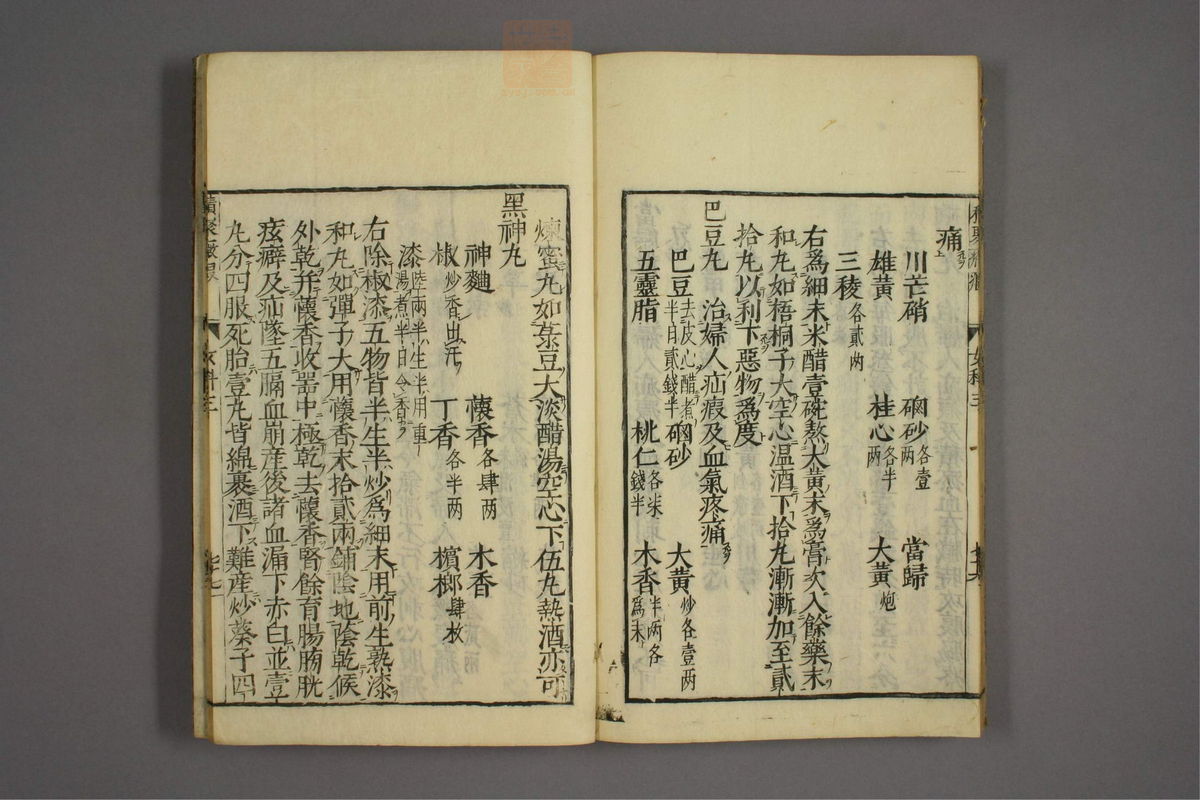 痛
川芒硝 硇砂各壹两 當歸
雄黄 桂心各半两 大黄炮
三稜各貳两
右爲細末米醋壹碗熬大黄末爲膏次入餘藥末
和丸如梧桐子大空心温酒下拾丸漸漸加至貳
拾丸以利下惡物爲度
巴豆丸 治婦人疝瘕及血氣疼痛
巴豆去皮心醋煮半日貳錢半 硇砂 大黄炒各壹两
五靈脂 桃仁各柒錢半 木香半两各爲末
煉蜜丸如菉豆大淡醋湯空心下伍丸熱酒亦可
黑神丸
神麯 茴香各肆两 木香
椒炒香出汗 丁香各半两 檳榔肆枚
漆陸两半生半用重湯煮半日令香
右除椒漆五物皆半生半炒爲細末用前生熟漆
和丸如彈子大用茴香末拾貳兩鋪陰地蔭乾候
外乾并茴香收器中極乾去茴香腎餘育腸膀胱
痃癖及疝墜五膈血崩産後諸血漏下赤白並壹
丸分四服死胎壹丸皆綿裹酒下難産炒葵子四
女科三